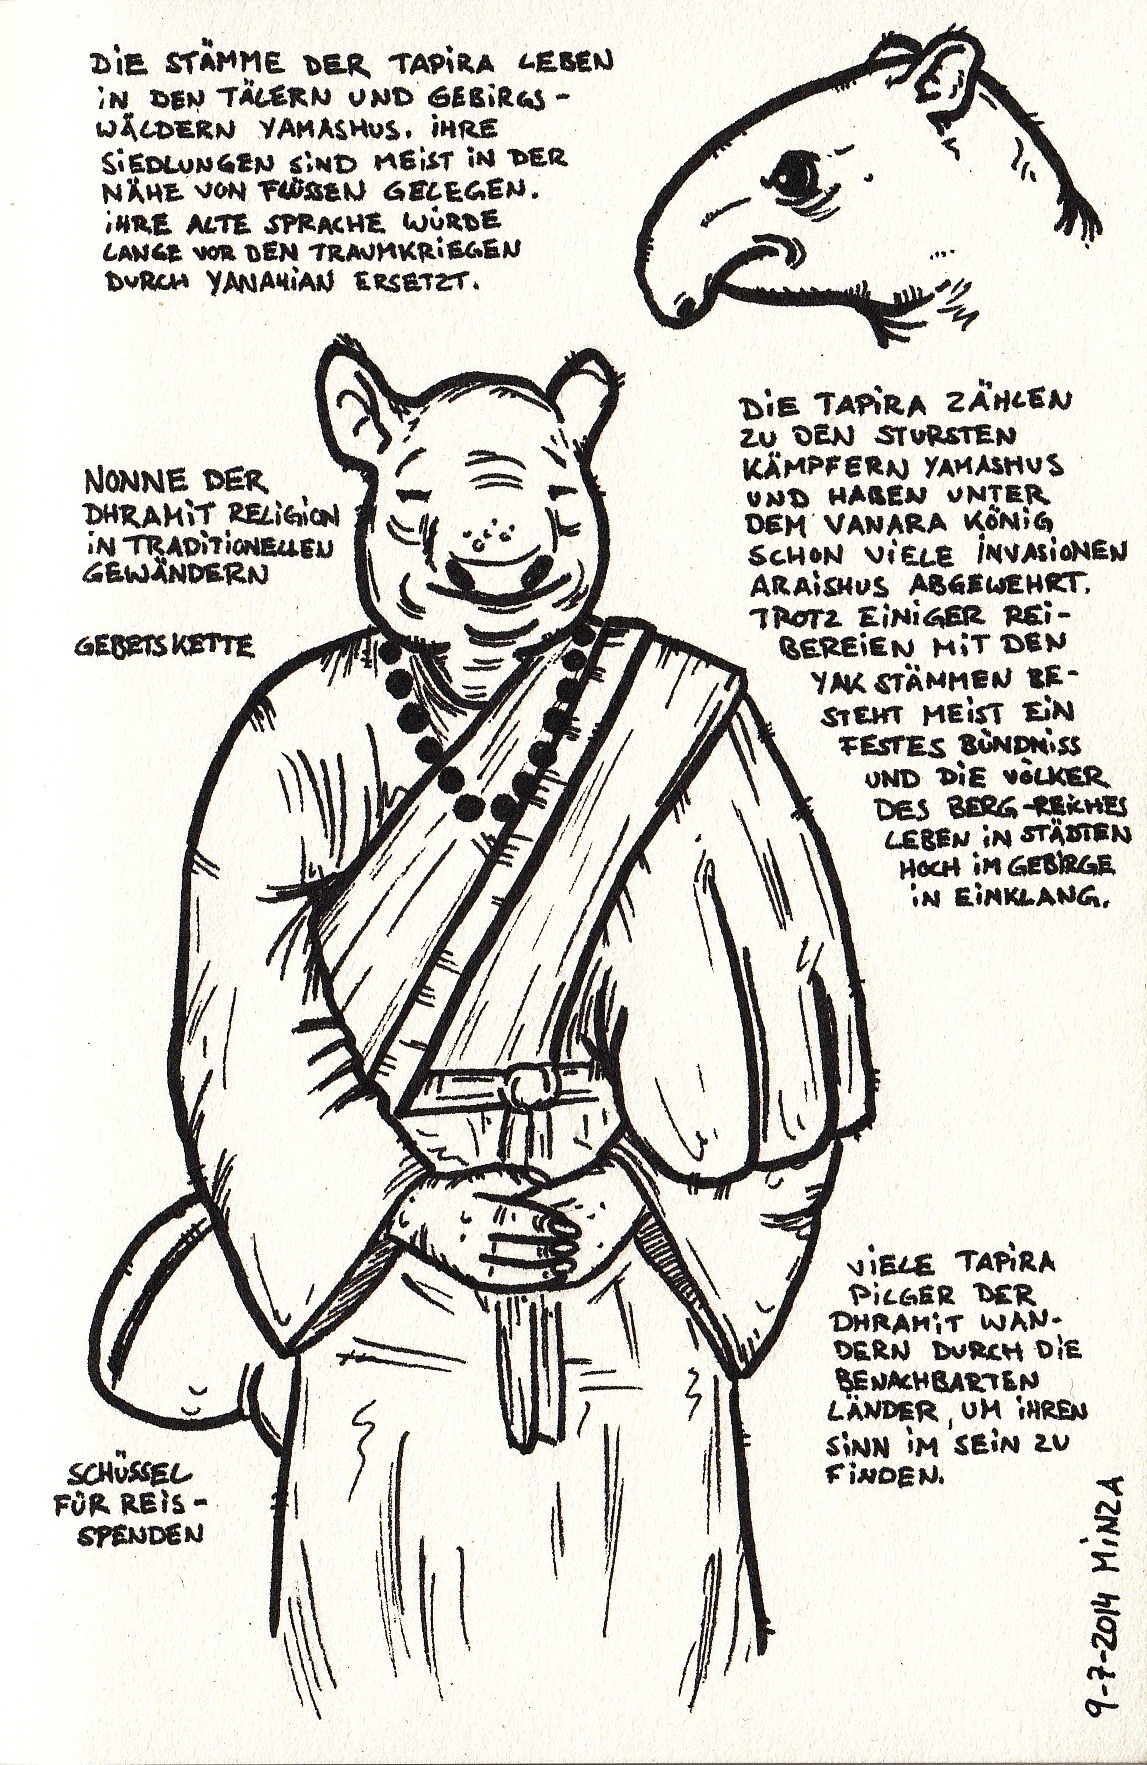 DIE STÄMME DER TAPIRA LEBEN
IN DEN TÄLERN UND GEBIRGS-
WÄLDERN YAMASHUS. IHRE
SIEDLUNGEN SIND MEIST IN DER
NÄHE VON FLÜSSEN GELEGEN.
IHRE ALTE SPRACHE WÜRDE
LANGE VOR DEN TRAUMKRIEGEN
DURCH YANAHIAN ERSETZT.
DIE TAPIRA ZÄHLEN
ZU DEN STURSTEN
KÄMPFERN YAMASHUS
UND HABEN UNTER
DEM VANARA KÖNIG
SCHON VIELE INVASIONEN
ARAISHUS ABGEWEHRT.
TROTZ EINIGER REI-
BEREIEN MIT DEN
YAK STÄMMEN BE-
STEHT MEIST EIN
FESTES BÜNDNISS
UND DIE VÖLKER
DES BERG-REICHES
LEBEN IN STÄDTEN
HOCH IM GEBIRGE
IN EINKLANG.
NONNE DER
DHRAMIT RELIGION
IN TRADITIONELLEN
GEWÄNDERN
GEBETSKETTE
VIELE TAPIRA
PILGER DER
DHRAMIT WAN-
DERN DURCH DIE
BENACHBARTEN
LÄNDER, UM IHREN
SINN IM SEIN ZU
FINDEN.
SCHÜSSEL
FÜR REIS-
SPENDEN
9-7-2014 MINZA